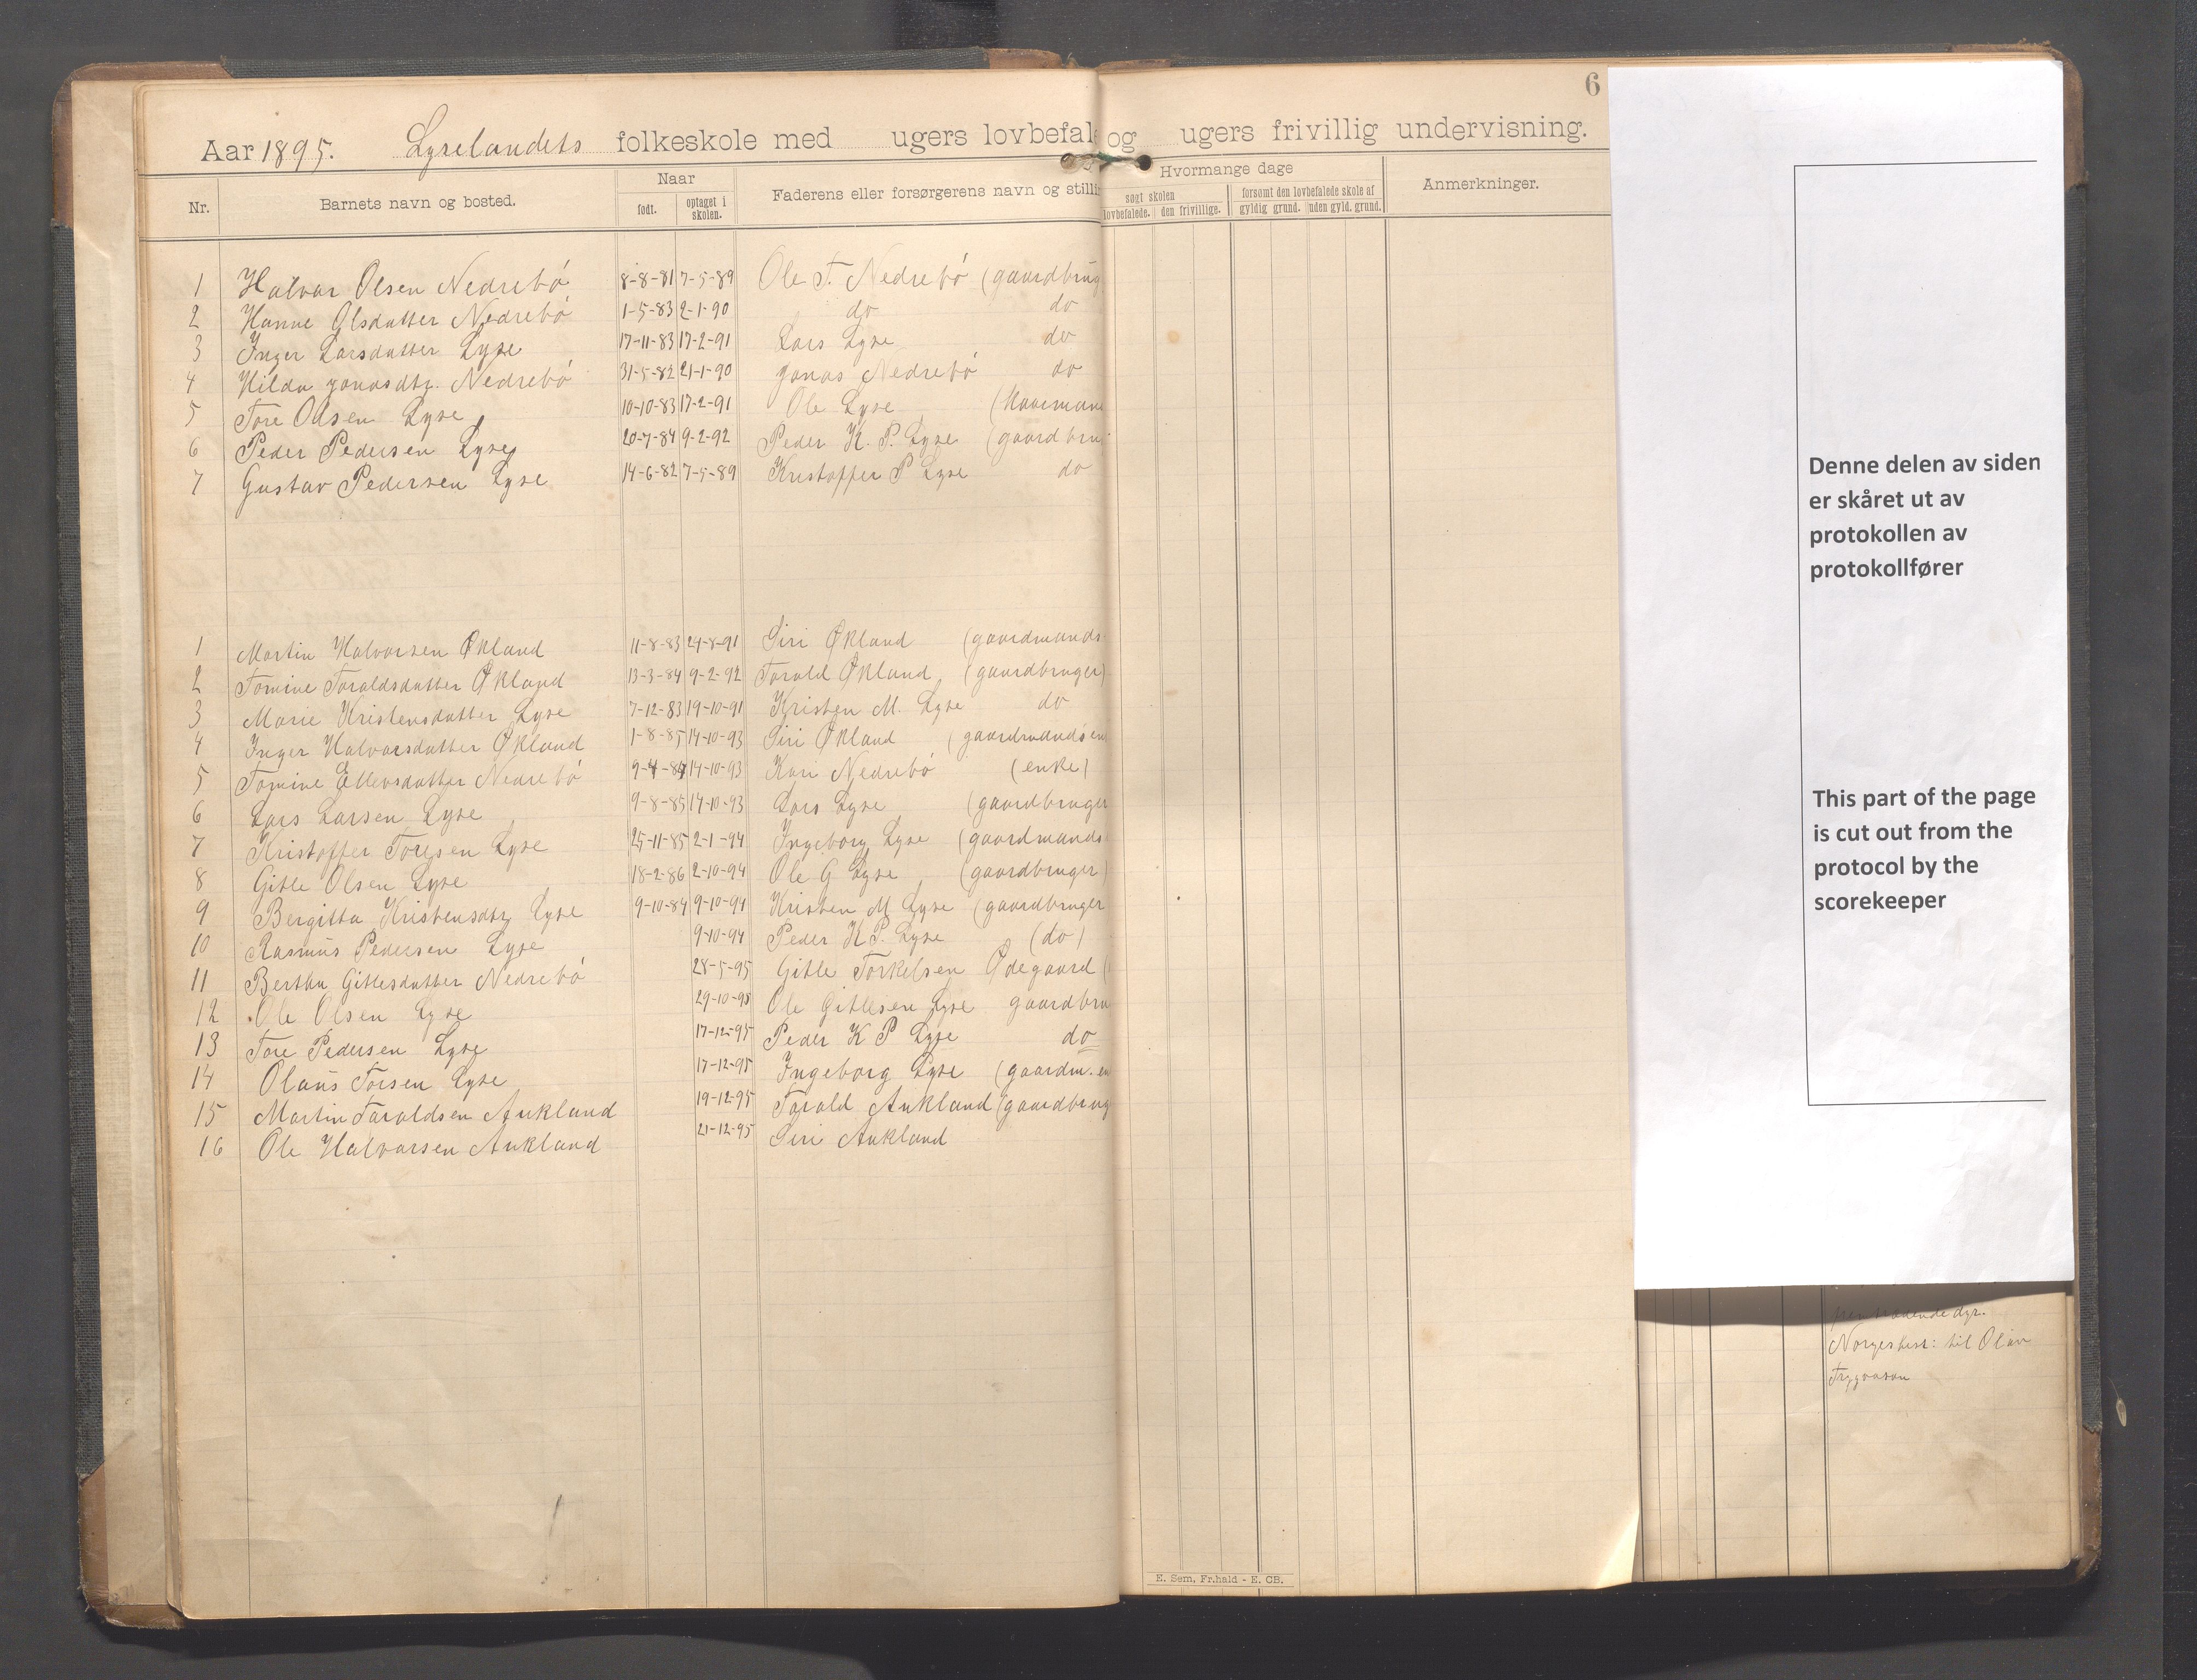 6
Aar 1895. Lyselandets folkeskole med ugers lovbefal og ugers frivillig undervisning.
Nr. Barnets navn og bosted. Naar født. optaget i skolen. Faderens eller forsørgerens navn og stillin Hvormange dage søgt skolen lovbefalede. den frivillige. forsømt den lovbefalede skole af gyldig grund. uden gyld. grund. Anmerkninger.
1 Halvar Olsen Nedrebó 8-8-81 7-5-89 Ole T. Nedrebó (gaardbrug
2 Hanne Olsdatter Nedrebó 1-5-83 2-1-90 do do
3 Inger Larsdatter Lyse 17-11-83 17-2-91 Lars Lyse do
4 Hilda Jonasdtr. Nedrebó 31-5-82 21-1-90 Jonas Nedrebó do
5 Tore Olsen Lyse 10-10-83 17-2-91 Ole Lyse (Kaarmand
6 Peder Pedersen Lyse 20-7-84 9-2-92 Peder K. P. Lyse (gaardbrug
7 Gustav Pedersen Lyse 14-6-82 7-5-89 Kristoffer P Lyse do
1 Martin Halvorsen Økland 11-8-83 24-8-91 Siri Økland (gaardmands
2 Tomine Taraldsdatter Økland 13-3-84 9-2-92 Tarald Økland (gaardbruger)
3 Marie Kristensdatter Lyse 7-12-83 19-10-91 Kristen M. Lyse do
4 Inger Halvarsdatter Økland 1-8-85 14-10-93 Siri Økland (gaardmands en
5 Tomine Ellevsdatter Nedrebó 9-4-84 14-10-93 Kari Nedrebó (enke)
6 Lars Larsen Lyse 9-8-85 14-10-93 Lars Lyse (gaardbruger
7 Kristoffer Toresen Lyse 25-11-85 2-1-94 Ingeborg Lyse (gaardmands
8 Gitle Olsen Lyse 18-2-86 2-10-94 Ole G Lyse (gaardbruger)
9 Bergitta Kristensdtr Lyse 9-10-84 9-10-94 Kristen M Lyse (gaardbruger
10 Rasmus Pedersen Lyse 9-10-94 Peder K P. Lyse (do)
11 Bertha Gitlesdatter Nedrebó 28-5-95 Gitle Torkelsen Ødegaard (
12 Ole Olsen Lyse 29-10-95 Ole Gitlesen Lyse gaardbru
13 Tore Pedersen Lyse 17-12-95 Peder K P Lyse do
14 Olaus Torsen Lyse 17-12-95 Ingeborg Lyse (gaardm. en
15 Martin Taraldsen Aukland 19-12-95 Tarald Aukland (gaardbrug
16 Ole Halvarsen Aukland 21-12-95 Siri Aukland
E. Sem, Fr.hald - E. CB.
Denne delen av siden
er skåret ut av
protokollen av
protokollfører
This part of the page
is cut out from the
protocol by the
scorekeeper
dyr.
Norgeshist: til Olav
Trygvason